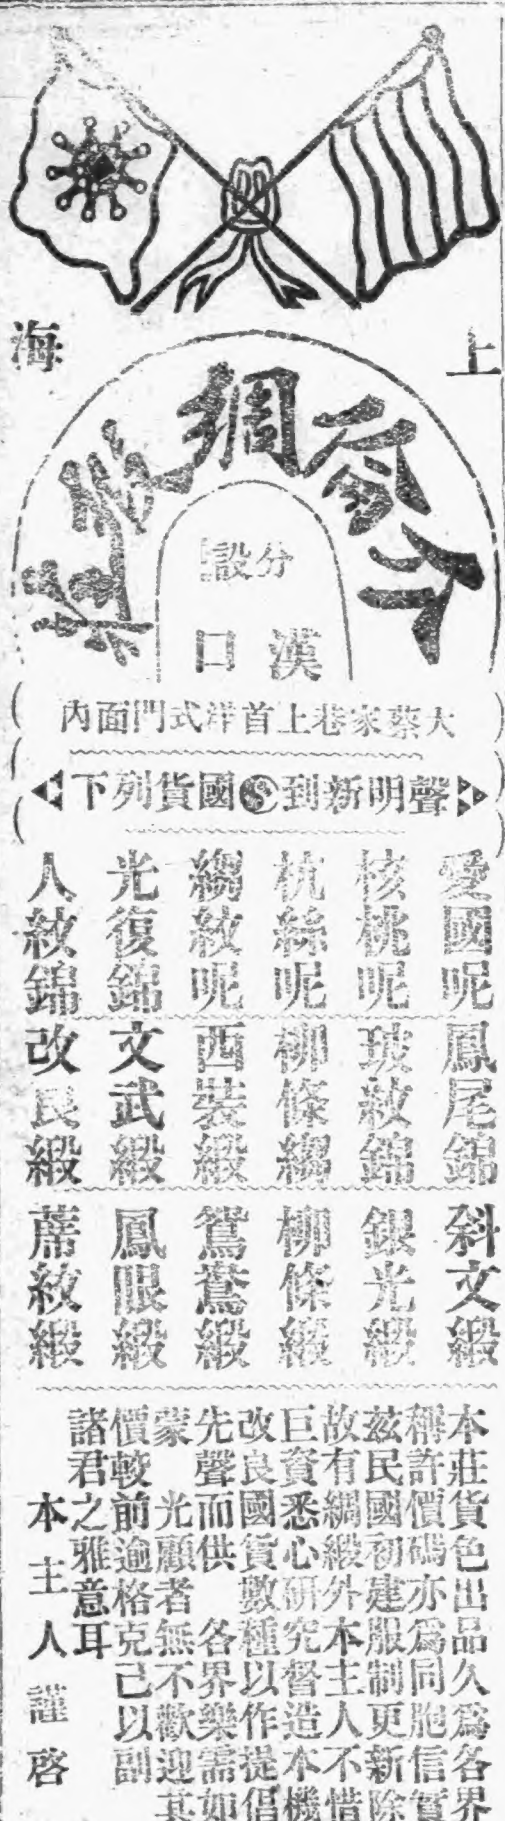 上海
介侖綢緞莊
分設
漢口
大蔡家巷上首洋式門面內
聲明新到國貨列下
愛國呢
核桃呢
杭絲呢
縐紋呢
光復錦
人紋錦
鳳尾錦
玻紋錦
柳條縐
西裝緞
文武緞
改良緞
斜文緞
銀光緞
柳條緞
鴛鴦緞
鳳眼緞
蓆紋緞
本莊貨色出品久爲各界
稱許價碼亦爲同胞信實
茲民國初建服制更新除
故有綢緞外本主人不惜
巨資悉心研究督造本機
改良國貨數種以作提倡
先聲而供 各界樂需如
蒙 光顧者無不歡迎其
價較前逾格克己以副
諸君之雅意耳
本主人謹啓